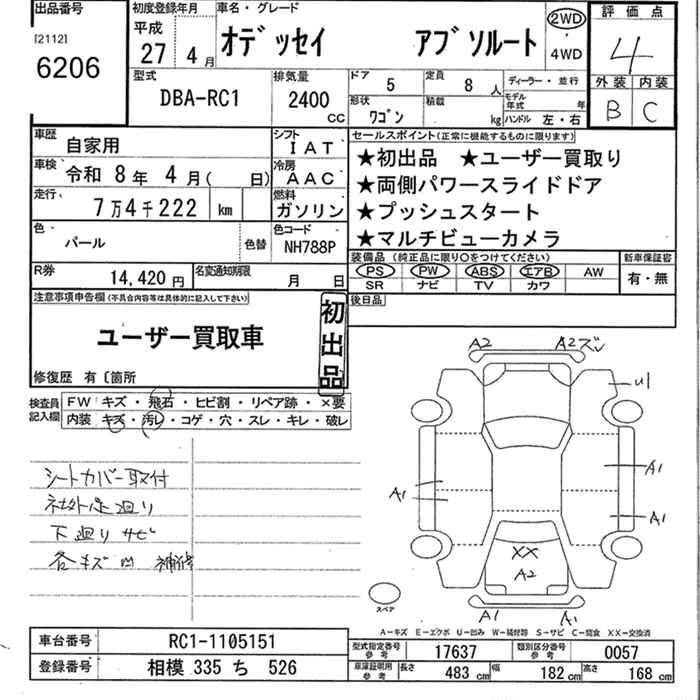 出品番号
[2112]
6206
初度登録年月
平成
27 4 月
車名・グレード
オデッセイ アブソルート
2WD
4WD
評価点
4
外装 内装
B C
型式
DBA-RC1
排気量
2400
CC
ドア
5
定員
8 人
形状
ワゴン
積載
kg
ディーラー・並行
モデル年式 年
ハンドル 左・右
車歴
自家用
シフト
IAT
車検
令和 8 年 4 月( 日)
冷房
AAC
走行
7万4千222 km
燃料
ガソリン
色
パール
色替
色コード
NH788P
R券
14,420 円
名変通知期限
月 日
セールスポイント(正常に機能するものに限ります)
★初出品 ★ユーザー買取り
★両側パワースライドドア
★プッシュスタート
★マルチビューカメラ
装備品 (純正品に限り○をつけてください)
PS PW ABS エアB AW
SR ナビ TV カワ
新車保証書
有・無
後日品
注意事項申告欄(不具合内容等は具体的に記入して下さい)
ユーザー買取車
初出品
修復歴 有〔箇所
検査員記入欄
FW キズ・飛石・ヒビ割・リペア跡・×要
内装 キズ・汚レ・コゲ・穴・スレ・キレ・破レ
シートカバー取付
社外足廻り
下廻りサビ
各キズ凹 補修
A2 A2ズレ
U1
A1
A1
A1
XX
A2
A1 A1
スペア
A-キズ E-エクボ U-凹み W-補修跡 S-サビ C-腐食 XX-交換済
車台番号
RC1-1105151
登録番号
相模 335 ち 526
型式指定番号
参考
17637
類別区分番号
参考
0057
車庫証明用
参考
長さ 483 cm 幅 182 cm 高さ 168 cm